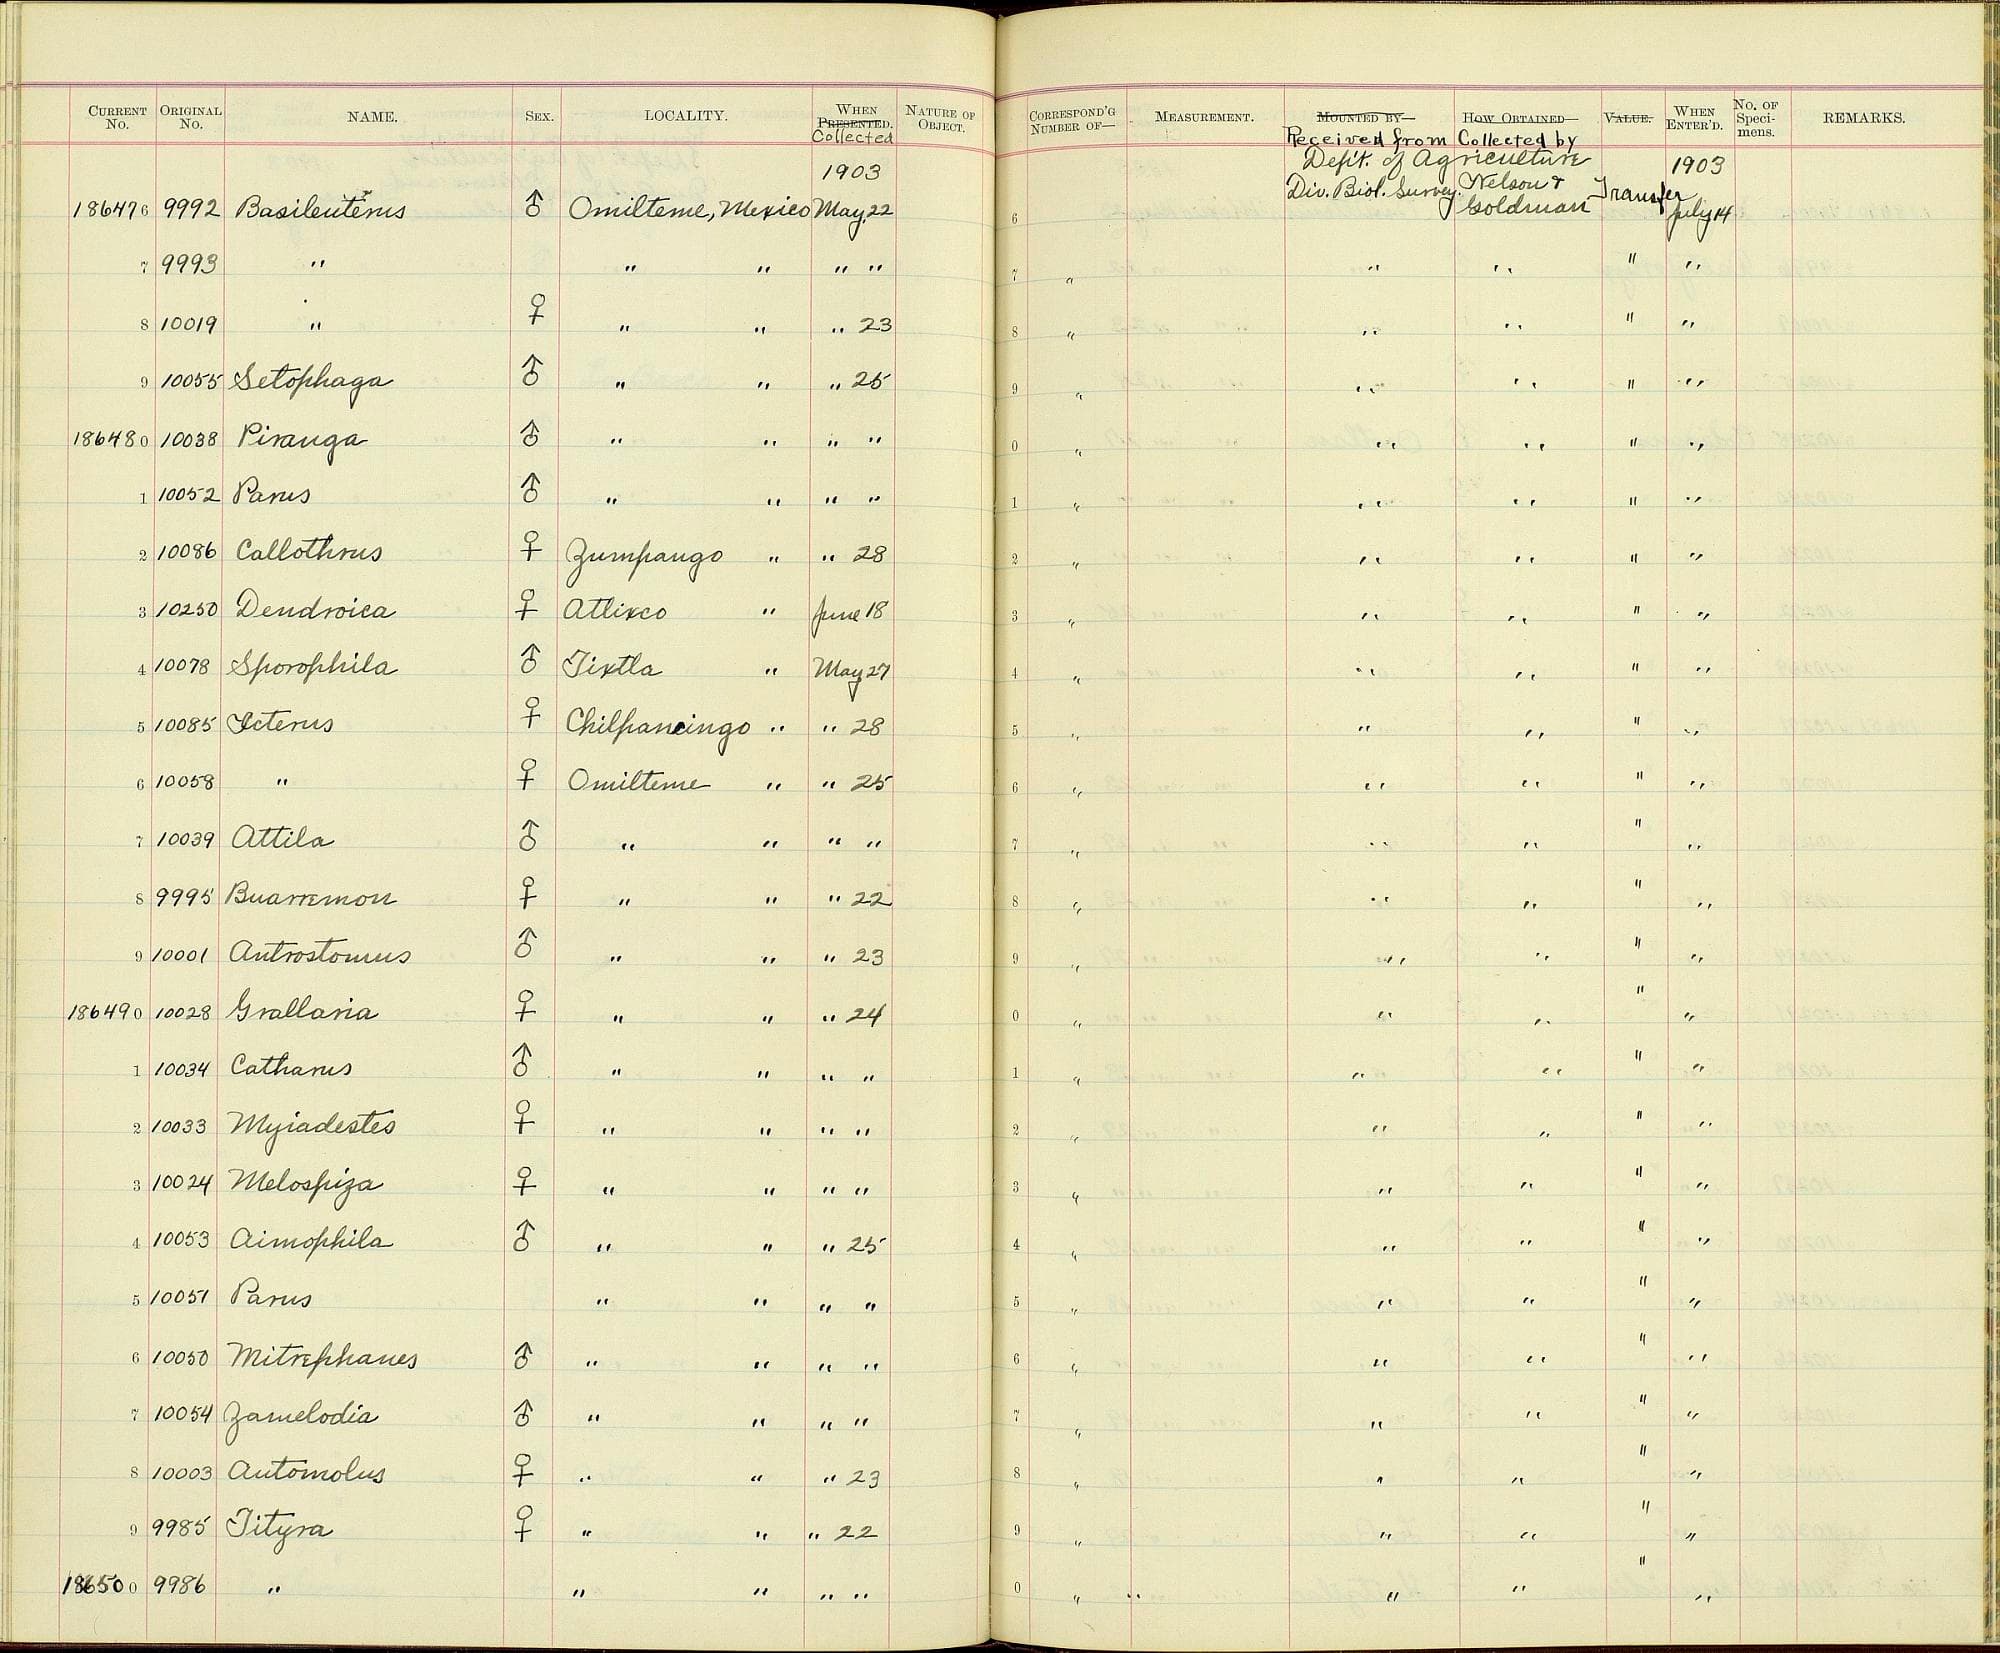 CURRENT No. ORIGINAL No. NAME. SEX. LOCALITY. WHEN PRESENTED. Collected NATURE OF OBJECT. CORRESPOND'G NUMBER OF— MEASUREMENT. MOUNTED BY— Received from HOW OBTAINED— Collected by VALUE. WHEN ENTER'D. No. OF Speci- mens. REMARKS.
1903 Dept. of Agriculture 1903
186476 9992 Basileuterus ♂ Omilteme, Mexico May 22 6 Div. Biol. Survey. Nelson & Goldman Transfer July 14
7 9993 " " " " " 7 " " " " "
8 10019 " ♀ " " " 23 8 " " " " "
9 10055 Setophaga ♂ " " " 25 9 " " " " "
186480 10038 Piranga ♂ " " " " 0 " " " " "
1 10052 Parus ♂ " " " " 1 " " " " "
2 10086 Callothrus ♀ Zumpango " " 28 2 " " " " "
3 10250 Dendroica ♀ Atlixco " June 18 3 " " " " "
4 10078 Sporophila ♂ Tixtla " May 27 4 " " " " "
5 10085 Icterus ♀ Chilpancingo " " 28 5 " " " " "
6 10058 " ♀ Omilteme " " 25 6 " " " " "
7 10039 Attila ♂ " " " " 7 " " " " "
8 9995 Buarremon ♀ " " " 22 8 " " " " "
9 10001 Antrostomus ♂ " " " 23 9 " " " " "
186490 10028 Grallaria ♀ " " " 24 0 " " " " "
1 10034 Catharus ♂ " " " " 1 " " " " "
2 10033 Myiadestes ♀ " " " " 2 " " " " "
3 10024 Melospiza ♀ " " " " 3 " " " " "
4 10053 Aimophila ♂ " " " 25 4 " " " " "
5 10051 Parus " " " " 5 " " " " "
6 10050 Mitrephanes ♂ " " " " 6 " " " " "
7 10054 Zamelodia ♂ " " " " 7 " " " " "
8 10003 Automolus ♀ " " " 23 8 " " " " "
9 9985 Tityra ♀ " " " 22 9 " " " " "
186500 9986 " " " " " 0 " " " " " "